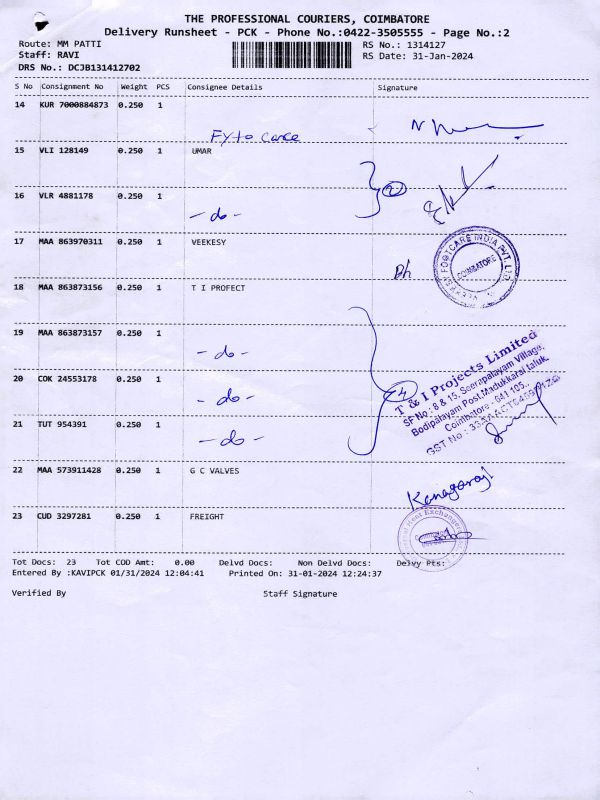 THE PROFESSIONAL COURIERS, COIMBATORE
Delivery Runsheet - PCK - Phone No.:0422-3505555 - Page No.:2
Route: MM PATTI
Staff: RAVI
DRS No.: DCJB131412702
RS No.: 1314127
RS Date: 31-Jan-2024
S No Consignment No Weight PCS Consignee Details Signature
14 KUR 7000884873 0.250 1
Fyto care
15 VLI 128149 0.250 1 UMAR
16 VLR 4881178 0.250 1
- do - 2
17 MAA 863970311 0.250 1 VEEKESY
VEEKESY FOOTCARE INDIA PVT. LTD.
COIMBATORE
18 MAA 863873156 0.250 1 T I PROFECT
19 MAA 863873157 0.250 1
- do -
20 COK 24553178 0.250 1
- do - 4
21 TUT 954391 0.250 1
- do -
T & I Projects Limited
SF No : 8 & 15, Seerapalayam Village,
Bodipalayam Post, Madukkarai taluk,
Coimbatore - 641 105.
GST No :
22 MAA 573911428 0.250 1 G C VALVES
Kanagaraj
23 CUD 3297281 0.250 1 FREIGHT
Tot Docs: 23 Tot COD Amt: 0.00 Delvd Docs: Non Delvd Docs: Delvy Pts:
Entered By :KAVIPCK 01/31/2024 12:04:41 Printed On: 31-01-2024 12:24:37
Verified By Staff Signature